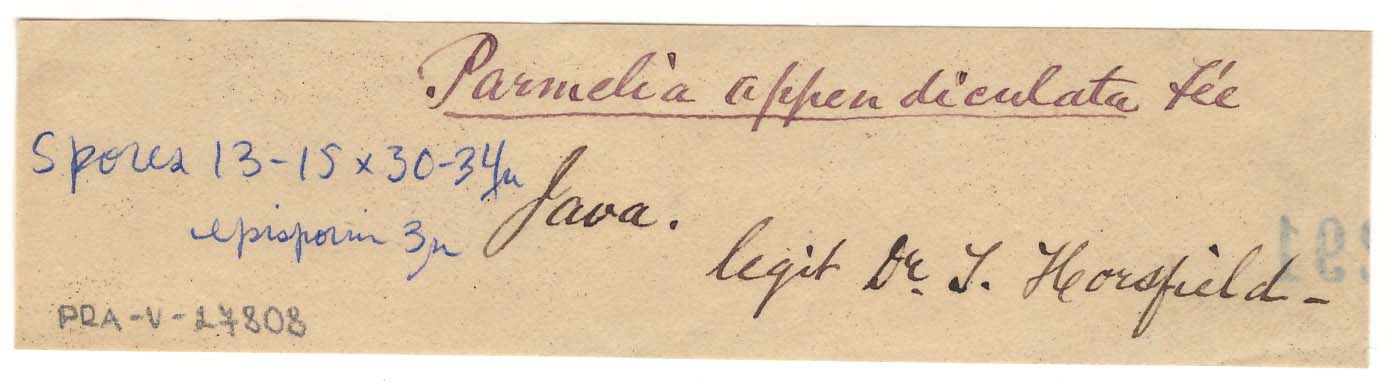 Parmelia appendiculata Fée
Spores 13-15 x 30-34µ
episporium 3µ
Java.
legit Dr. T. Horsfield -
PRA-V-27808